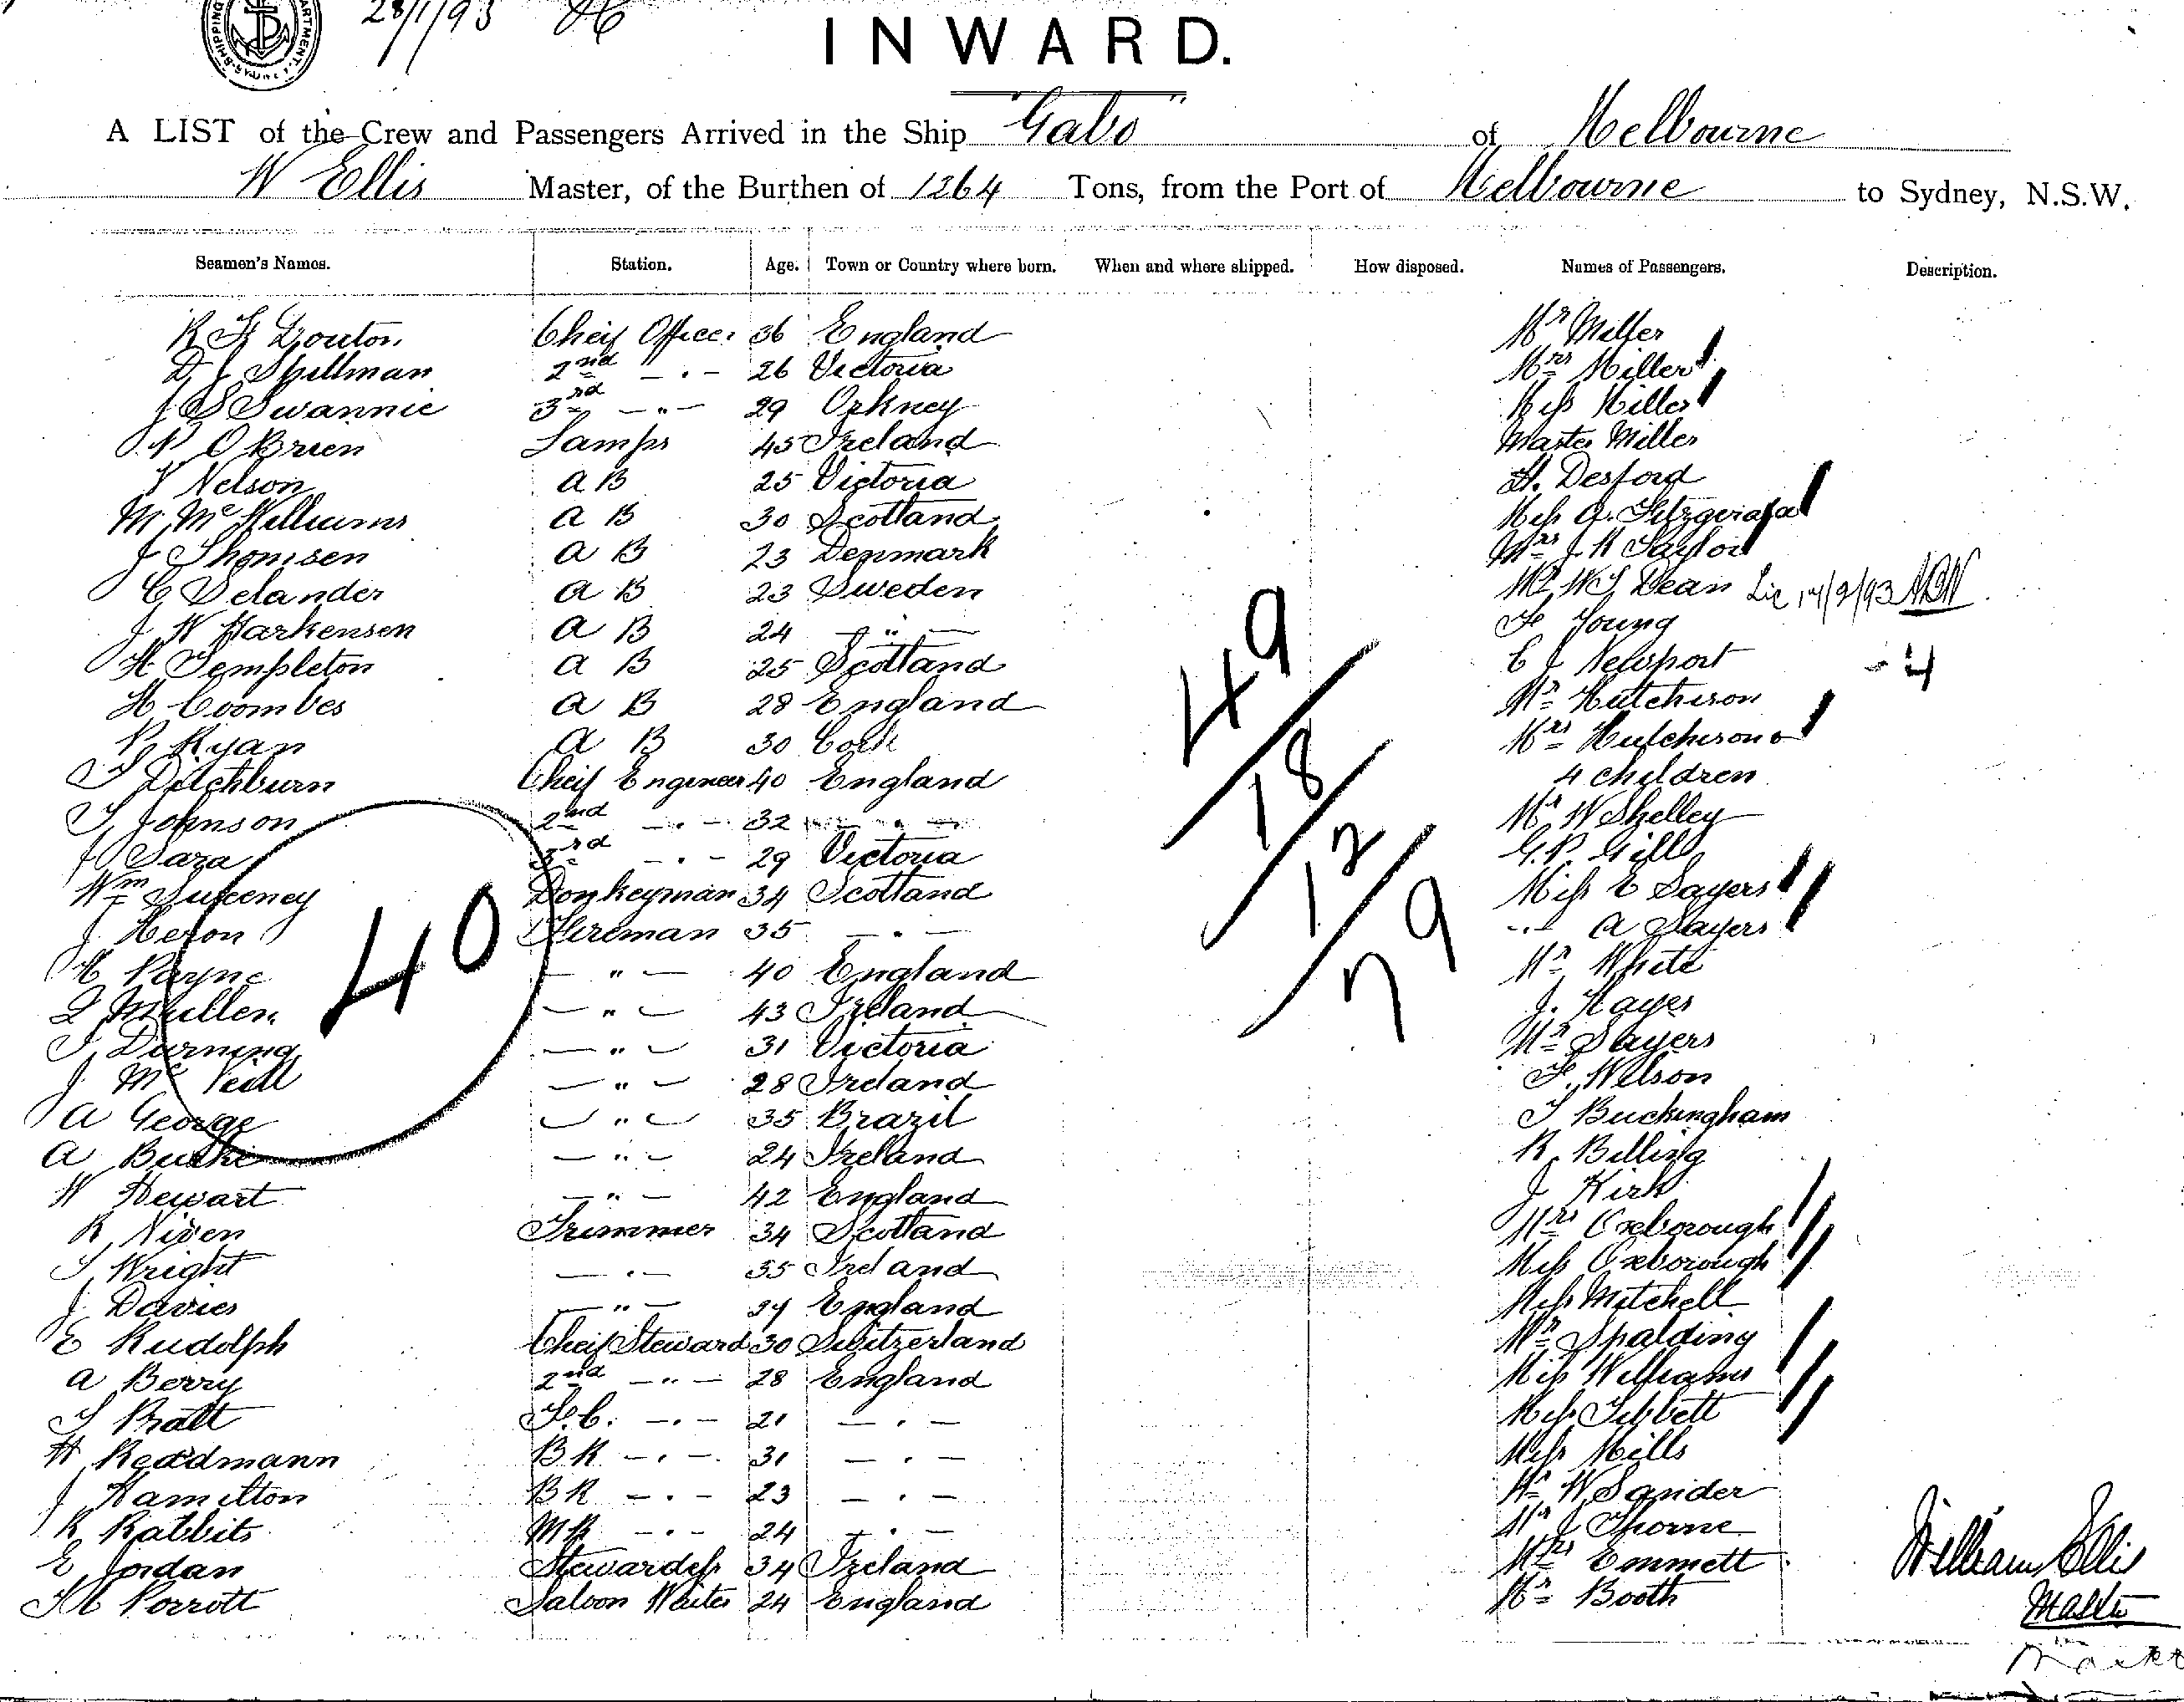 SHIPPING DEPARTMENT
28/1/93
INWARD.
A LIST of the Crew and Passengers Arrived in the Ship "Gabo" of Melbourne
W Ellis Master, of the Burthen of 1264 Tons, from the Port of Melbourne to Sydney, N.S.W.
Seamen's Names. Station. Age. Town or Country where born. When and where shipped. How disposed. Names of Passengers. Description.
Cheif Officer 36 England Mr Miller
D J Spillman 2nd -"- 26 Victoria Mrs Miller
J S Swannie 3rd -"- 29 Orkney Miss Miller
P O'Brien Lamps 45 Ireland Master Miller
Nelson A B 25 Victoria H. Desford
M McWilliams A B 30 Scotland Miss A. Fitzgerald
J Thomsen A B 23 Denmark Mrs J H Taylor
C Selander A B 23 Sweden Mr W J Dean Lic 14/2/93
J W Harkensen A B 24 -"- F Young
H Templeton A B 25 Scotland C J Newport - 4
H Coombes A B 28 England Mr Hutchison
P Ryan A B 30 Cork Mrs Hutchison &
T Ditchburn Cheif Engineer 40 England 4 children
T Johnson 2nd -"- 32 -"- Mr W Shelley
Sara 3rd -"- 29 Victoria G.P. Gill
Wm Sweeney Donkeyman 34 Scotland Miss E Sayers
J. Heron Fireman 35 -"- -"- A Sayers
H Payne -"- 40 England Mr White
Mullen -"- 43 Ireland J. Hayes
T Durning -"- 31 Victoria Mr Sayers
J. McNeill -"- 28 Ireland F. Wilson
A George -"- 35 Brazil T Buckingham
A Burke -"- 24 Ireland R Billing
W Hewart -"- 42 England J Kirk
R Niven Trimmer 34 Scotland Mrs Oxeborough
T Wright -"- 35 Ireland Miss Oxeborough
J. Davies -"- England Miss Mitchell
E Rudolph Cheif Steward 30 Switzerland Mr Spalding
A Berry 2nd -"- 28 England Miss Williams
T Pratt F.C. -"- 21 -"- Miss Tibbett
H Readmann B R -"- 31 -"- Miss Mills
J Hamilton B R -"- 23 -"- Mr W Sander
R Rabbits M R -"- 24 -"- Mr J Thorne
E Jordan Stewardess 34 Ireland Mrs Emmett
Porrott Saloon Waiter 24 England Mr Booth
40
49
18
12
79
William Ellis
Master